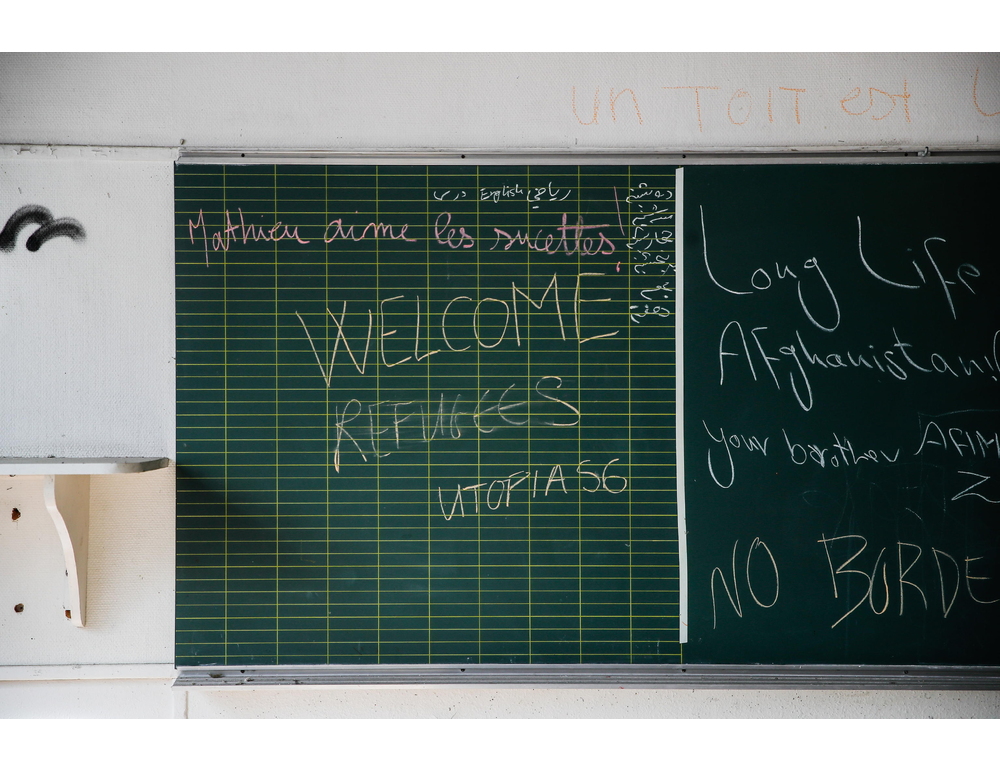 un TOIT est
درس English ریاضی
Mathieu aime les sucettes!
WELCOME
REFUGEES
UTOPIA 56
Long Life
Afghanistan!
your barother AFIM
Z
NO BORDE